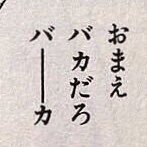 おまえ
バカだろ
バ――カ